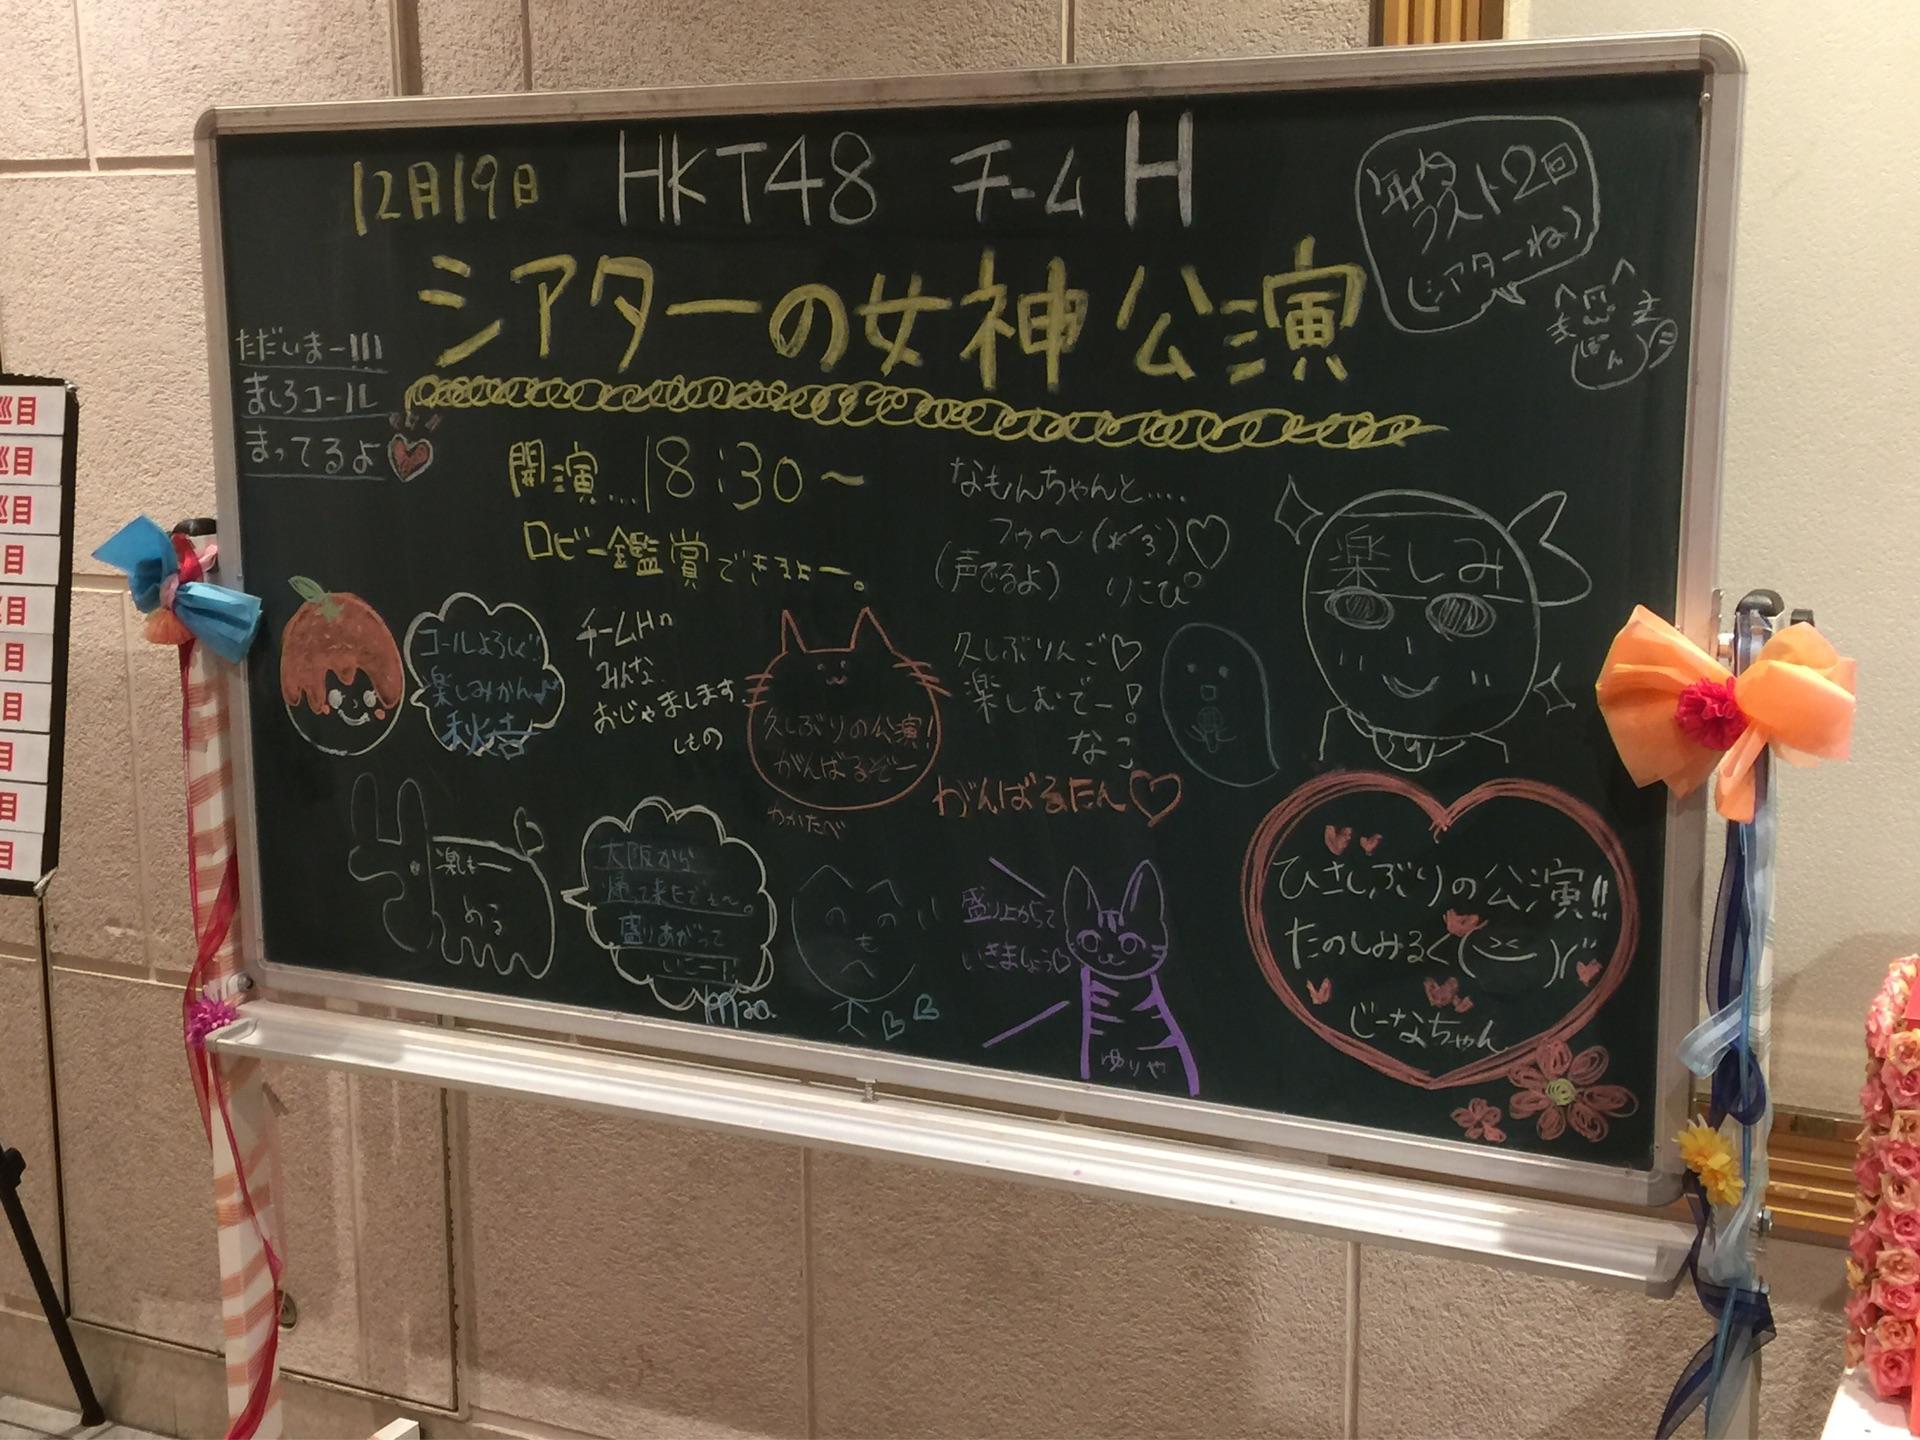 12月19日 HKT48 チームH
シアターの女神公演
年内
ラスト2回
シアターね)
まじ
ぽん
ただいまー!!!
ましろコール
まってるよ
開演....18:30～
ロビー鑑賞できるよー。
なもんちゃんと....
フゥ〜(*´3`)♡
(声でるよ) りこぴ
楽しみ
コールよろしく!!
楽しみかん♪
秋吉
チームHの
みんな
おじゃまします
しもの
久しぶりの公演!
がんばるぞー
わかたべ
久しぶりんご♡
楽しむでー!
なこ
がんばるたん♡
楽しも
める
大阪から
帰って来たでぇ〜。
盛りあがって
いこー!!
も
盛り上がって
いきましょう♡
ゆりや
ひさしぶりの公演!!
たのしみるく
じーなちゃん
巡目
巡目
巡目
目
巡目
目
目
目
目
目